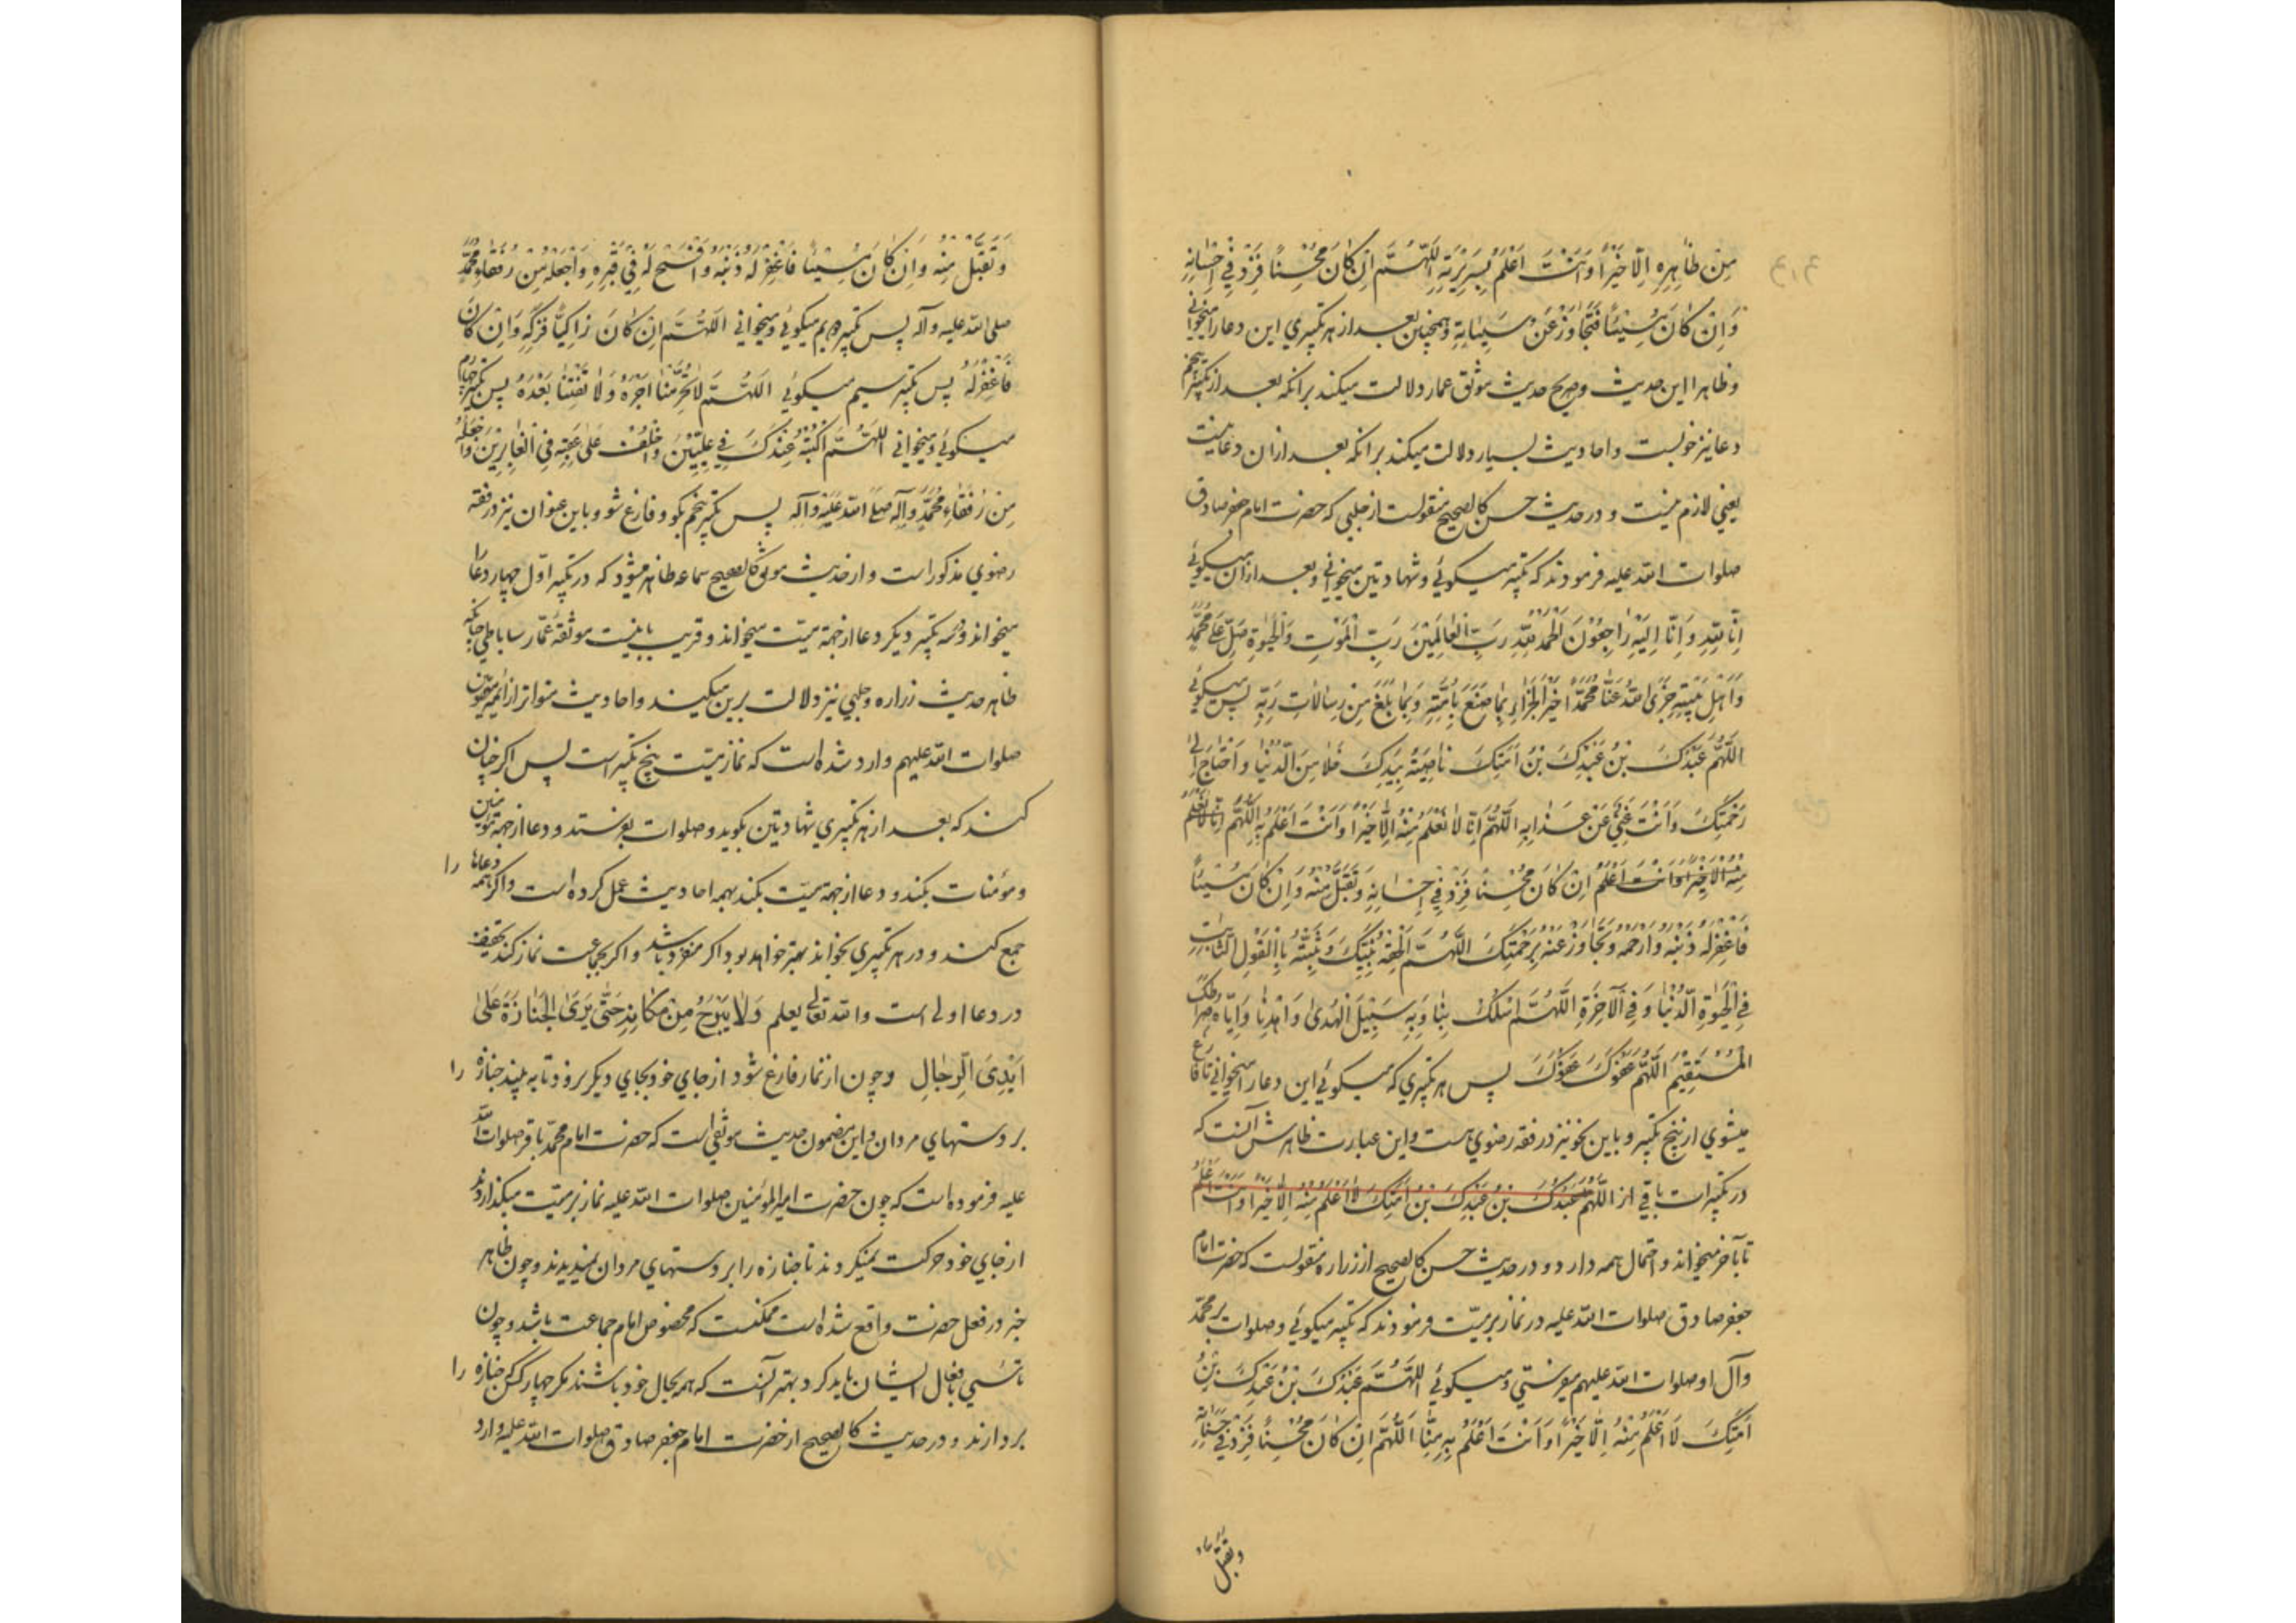 مِنْ ظَاهِرِهِ اِلَّا خَيْرًا وَاَنْتَ اَعْلَمُ بِسَرِيْرَتِهِ اَللّٰهُمَّ اِنْ كَانَ مُحْسِنًا فَزِدْ فِيْ اِحْسَانِهِ
وَاِنْ كَانَ مُسِيْئًا فَتَجَاوَزْ عَنْ سَيِّئَاتِهِ وهمچنین بعد از هر تکبیری این دعا را میخوانی
و ظاهرا این حدیث و صریح حدیث موثق عمار دلالت میکند برانکه بعد از تکبیر پنجم
دعا نیز خوبست و احادیث بسیار دلالت میکند برانکه بعد ازان دعا نیست
یعنی لازم نیست و در حدیث حسن کالصحیح منقولست از حلبی که حضرت امام جعفر صادق
صلوات الله علیه فرمودند که تکبیر میکوئی و شهادتین میخوانی و بعد ازان میکوئی
اِنَّا لِلّٰهِ وَاِنَّا اِلَيْهِ رَاجِعُوْنَ اَلْحَمْدُ لِلّٰهِ رَبِّ الْعَالَمِيْنَ رَبِّ الْمَوْتِ وَالْحَيٰوةِ صَلِّ عَلٰى مُحَمَّدٍ
وَاَهْلِ بَيْتِهِ جَزَى اللهُ عَنَّا مُحَمَّدًا خَيْرَ الْجَزَاءِ بِمَا صَنَعَ بِاُمَّتِهِ وَبِمَا بَلَّغَ مِنْ رِسَالَاتِ رَبِّهِ پس میکوئی
اَللّٰهُمَّ عَبْدُكَ بْنُ عَبْدِكَ بْنُ اَمَتِكَ نَاصِيَتُهُ بِيَدِكَ خَلَا مِنَ الدُّنْيَا وَاحْتَاجَ اِلٰى
رَحْمَتِكَ وَاَنْتَ غَنِيٌّ عَنْ عَذَابِهِ اَللّٰهُمَّ اِنَّا لَا نَعْلَمُ مِنْهُ اِلَّا خَيْرًا وَاَنْتَ اَعْلَمُ بِهِ اَللّٰهُمَّ اِنَّا لَا نَعْلَمُ
مِنْهُ اِلَّا خَيْرًا وَاَنْتَ اَعْلَمُ اِنْ كَانَ مُحْسِنًا فَزِدْ فِيْ اِحْسَانِهِ وَتَقَبَّلْ مِنْهُ وَاِنْ كَانَ مُسِيْئًا
فَاغْفِرْ لَهُ ذَنْبَهُ وَارْحَمْهُ وَتَجَاوَزْ عَنْهُ بِرَحْمَتِكَ اَللّٰهُمَّ اَلْحِقْهُ بِنَبِيِّكَ وَثَبِّتْهُ بِالْقَوْلِ الثَّابِتِ
فِي الْحَيٰوةِ الدُّنْيَا وَفِي الْآخِرَةِ اَللّٰهُمَّ اسْلُكْ بِنَا وَبِهِ سَبِيْلَ الْهُدٰى وَاهْدِنَا وَاِيَّاهُ صِرَاطَكَ
الْمُسْتَقِيْمَ اَللّٰهُمَّ عَفْوَكَ عَفْوَكَ پس هر تکبیری که میکوئی این دعا را میخوانی تا فارغ
میشوی از پنج تکبیر و باین نحو نیز در فقه رضوی هست و این عبارت ظاهرش آنست که
در تکبیرات باقی از اَللّٰهُمَّ عَبْدُكَ بْنُ عَبْدِكَ بْنُ اَمَتِكَ لَا اَعْلَمُ مِنْهُ اِلَّا خَيْرًا وَاَنْتَ اَعْلَمُ
تا بآخر میخواند و احتمال همه دارد و در حدیث حسن کالصحیح از زراره منقولست که حضرت امام
جعفر صادق صلوات الله علیه در نماز بر میت فرمودند که تکبیر میکوئی و صلوات بر محمّد
وآل او صلوات الله علیهم میفرستی و میکوئی اَللّٰهُمَّ عَبْدُكَ بْنُ عَبْدِكَ بْنُ
اَمَتِكَ لَا اَعْلَمُ مِنْهُ اِلَّا خَيْرًا وَاَنْتَ اَعْلَمُ بِهِ مِنَّا اَللّٰهُمَّ اِنْ كَانَ مُحْسِنًا فَزِدْ فِيْ حَسَنَاتِهِ
وتقبل
وَتَقَبَّلْ مِنْهُ وَاِنْ كَانَ مُسِيْئًا فَاغْفِرْ لَهُ ذَنْبَهُ وَافْسَحْ لَهُ فِيْ قَبْرِهِ وَاجْعَلْهُ مِنْ رُفَقَاءِ مُحَمَّدٍ
صلی الله علیه وآله پس تکبیر دویم میکوئی و میخوانی اَللّٰهُمَّ اِنْ كَانَ زَاكِيًا فَزَكِّهِ وَاِنْ كَانَ
فَاغْفِرْ لَهُ پس تکبیر سیم میکوئی اَللّٰهُمَّ لَا تَحْرِمْنَا اَجْرَهُ وَلَا تَفْتِنَّا بَعْدَهُ پس تکبیر چهارم
میکوئی و میخوانی اَللّٰهُمَّ اكْتُبْهُ عِنْدَكَ فِيْ عِلِّيِّيْنَ وَاخْلُفْ عَلٰى عَقِبِهِ فِي الْغَابِرِيْنَ وَاجْعَلْهُ
مِنْ رُفَقَاءِ مُحَمَّدٍ وَآلِهِ صَلَّى اللهُ عَلَيْهِ وَآلِهِ پس تکبیر پنجم بکو و فارغ شو و باین عنوان نیز در فقه
رضوی مذکور است و از حدیث موثق کالصحیح سماعه ظاهر میشود که در تکبیر اوّل چهار دعا را
میخواند و در تکبیر دیکر دعا از جهة میّت میخواند و قریب باینست موثقه عمّار ساباطی چنانکه
ظاهر حدیث زراره و حلبی نیز دلالت برین میکند و احادیث متواتر از ائمه معصومین
صلوات الله علیهم وارد شده است که نماز میت پنج تکبیر است پس اکر چنان
کند که بعد از هر تکبیری شهادتین بکوید و صلوات بفرستد و دعا از جهة مؤمنین
و مؤمنات بکند و دعا از جهة میّت بکند بهمه احادیث عمل کرده است و اکر همه دعاها را
جمع کند و در هر تکبیری بخواند بهتر خواهد بود اکر منفرد باشد و اکر بجماعت نماز کند تخفیف
در دعا اولی است والله تعالی یعلم وَلَا يَبْرَحُ مِنْ مَكَانِهِ حَتّٰى يَرَى الْجَنَازَةَ عَلٰى
اَيْدِى الرِّجَالِ و چون از نماز فارغ شود از جای خود بجای دیکر نرود تا به بیند جنازه را
بر دستهای مردان و این مضمون حدیث موثقی است که حضرت امام محمّد باقر صلوات الله
علیه فرموده است که چون حضرت امیرالمؤمنین صلوات الله علیه نماز بر میّت میکذاردند
از جای خود حرکت نمیکردند تا جنازه را بر دستهای مردان نمیدیدند و چون ظاهر
خبر در فعل حضرت واقع شده است ممکنست که مخصوص امام جماعت باشد و چون
تاسّی بافعال ایشان باید کرد بهتر آنست که همه بحال خود باشند مکر چهار کس که جنازه را
بردارند و در حدیث کالصحیح از حضرت امام جعفر صادق صلوات الله علیه وارد